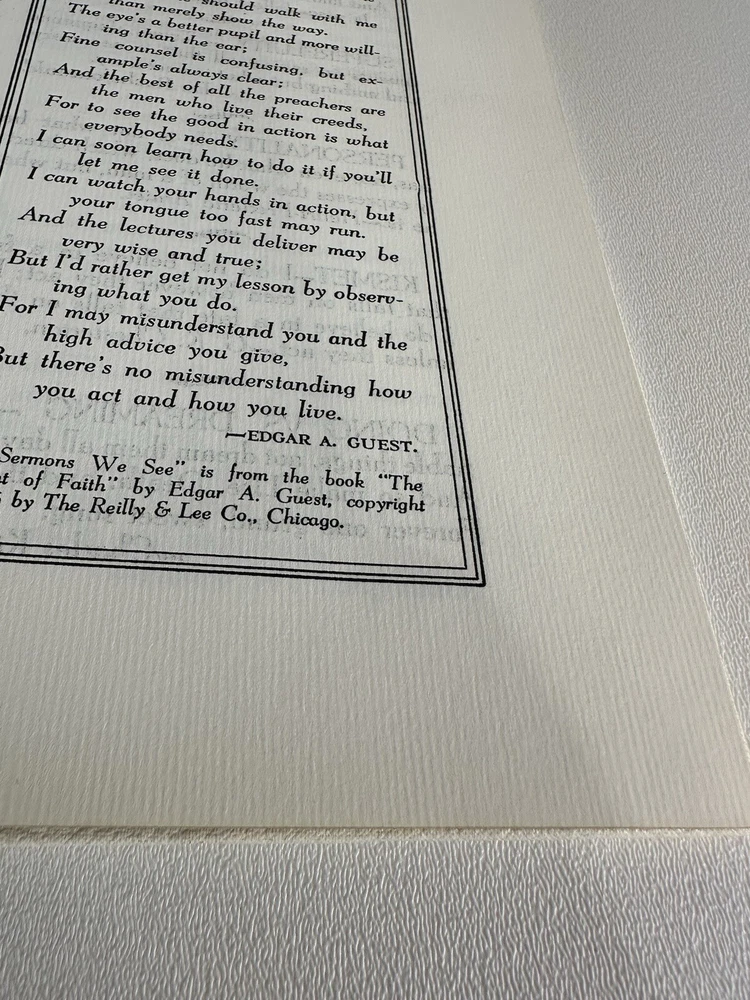 should walk with me
than merely show the way.
The eye's a better pupil and more will-
ing than the ear;
Fine counsel is confusing, but ex-
ample's always clear;
And the best of all the preachers are
the men who live their creeds,
For to see the good in action is what
everybody needs.
I can soon learn how to do it if you'll
let me see it done.
I can watch your hands in action, but
your tongue too fast may run.
And the lectures you deliver may be
very wise and true;
But I'd rather get my lesson by observ-
ing what you do.
For I may misunderstand you and the
high advice you give,
But there's no misunderstanding how
you act and how you live.
—EDGAR A. GUEST.
Sermons We See" is from the book "The
of Faith" by Edgar A. Guest, copyright
by The Reilly & Lee Co., Chicago.